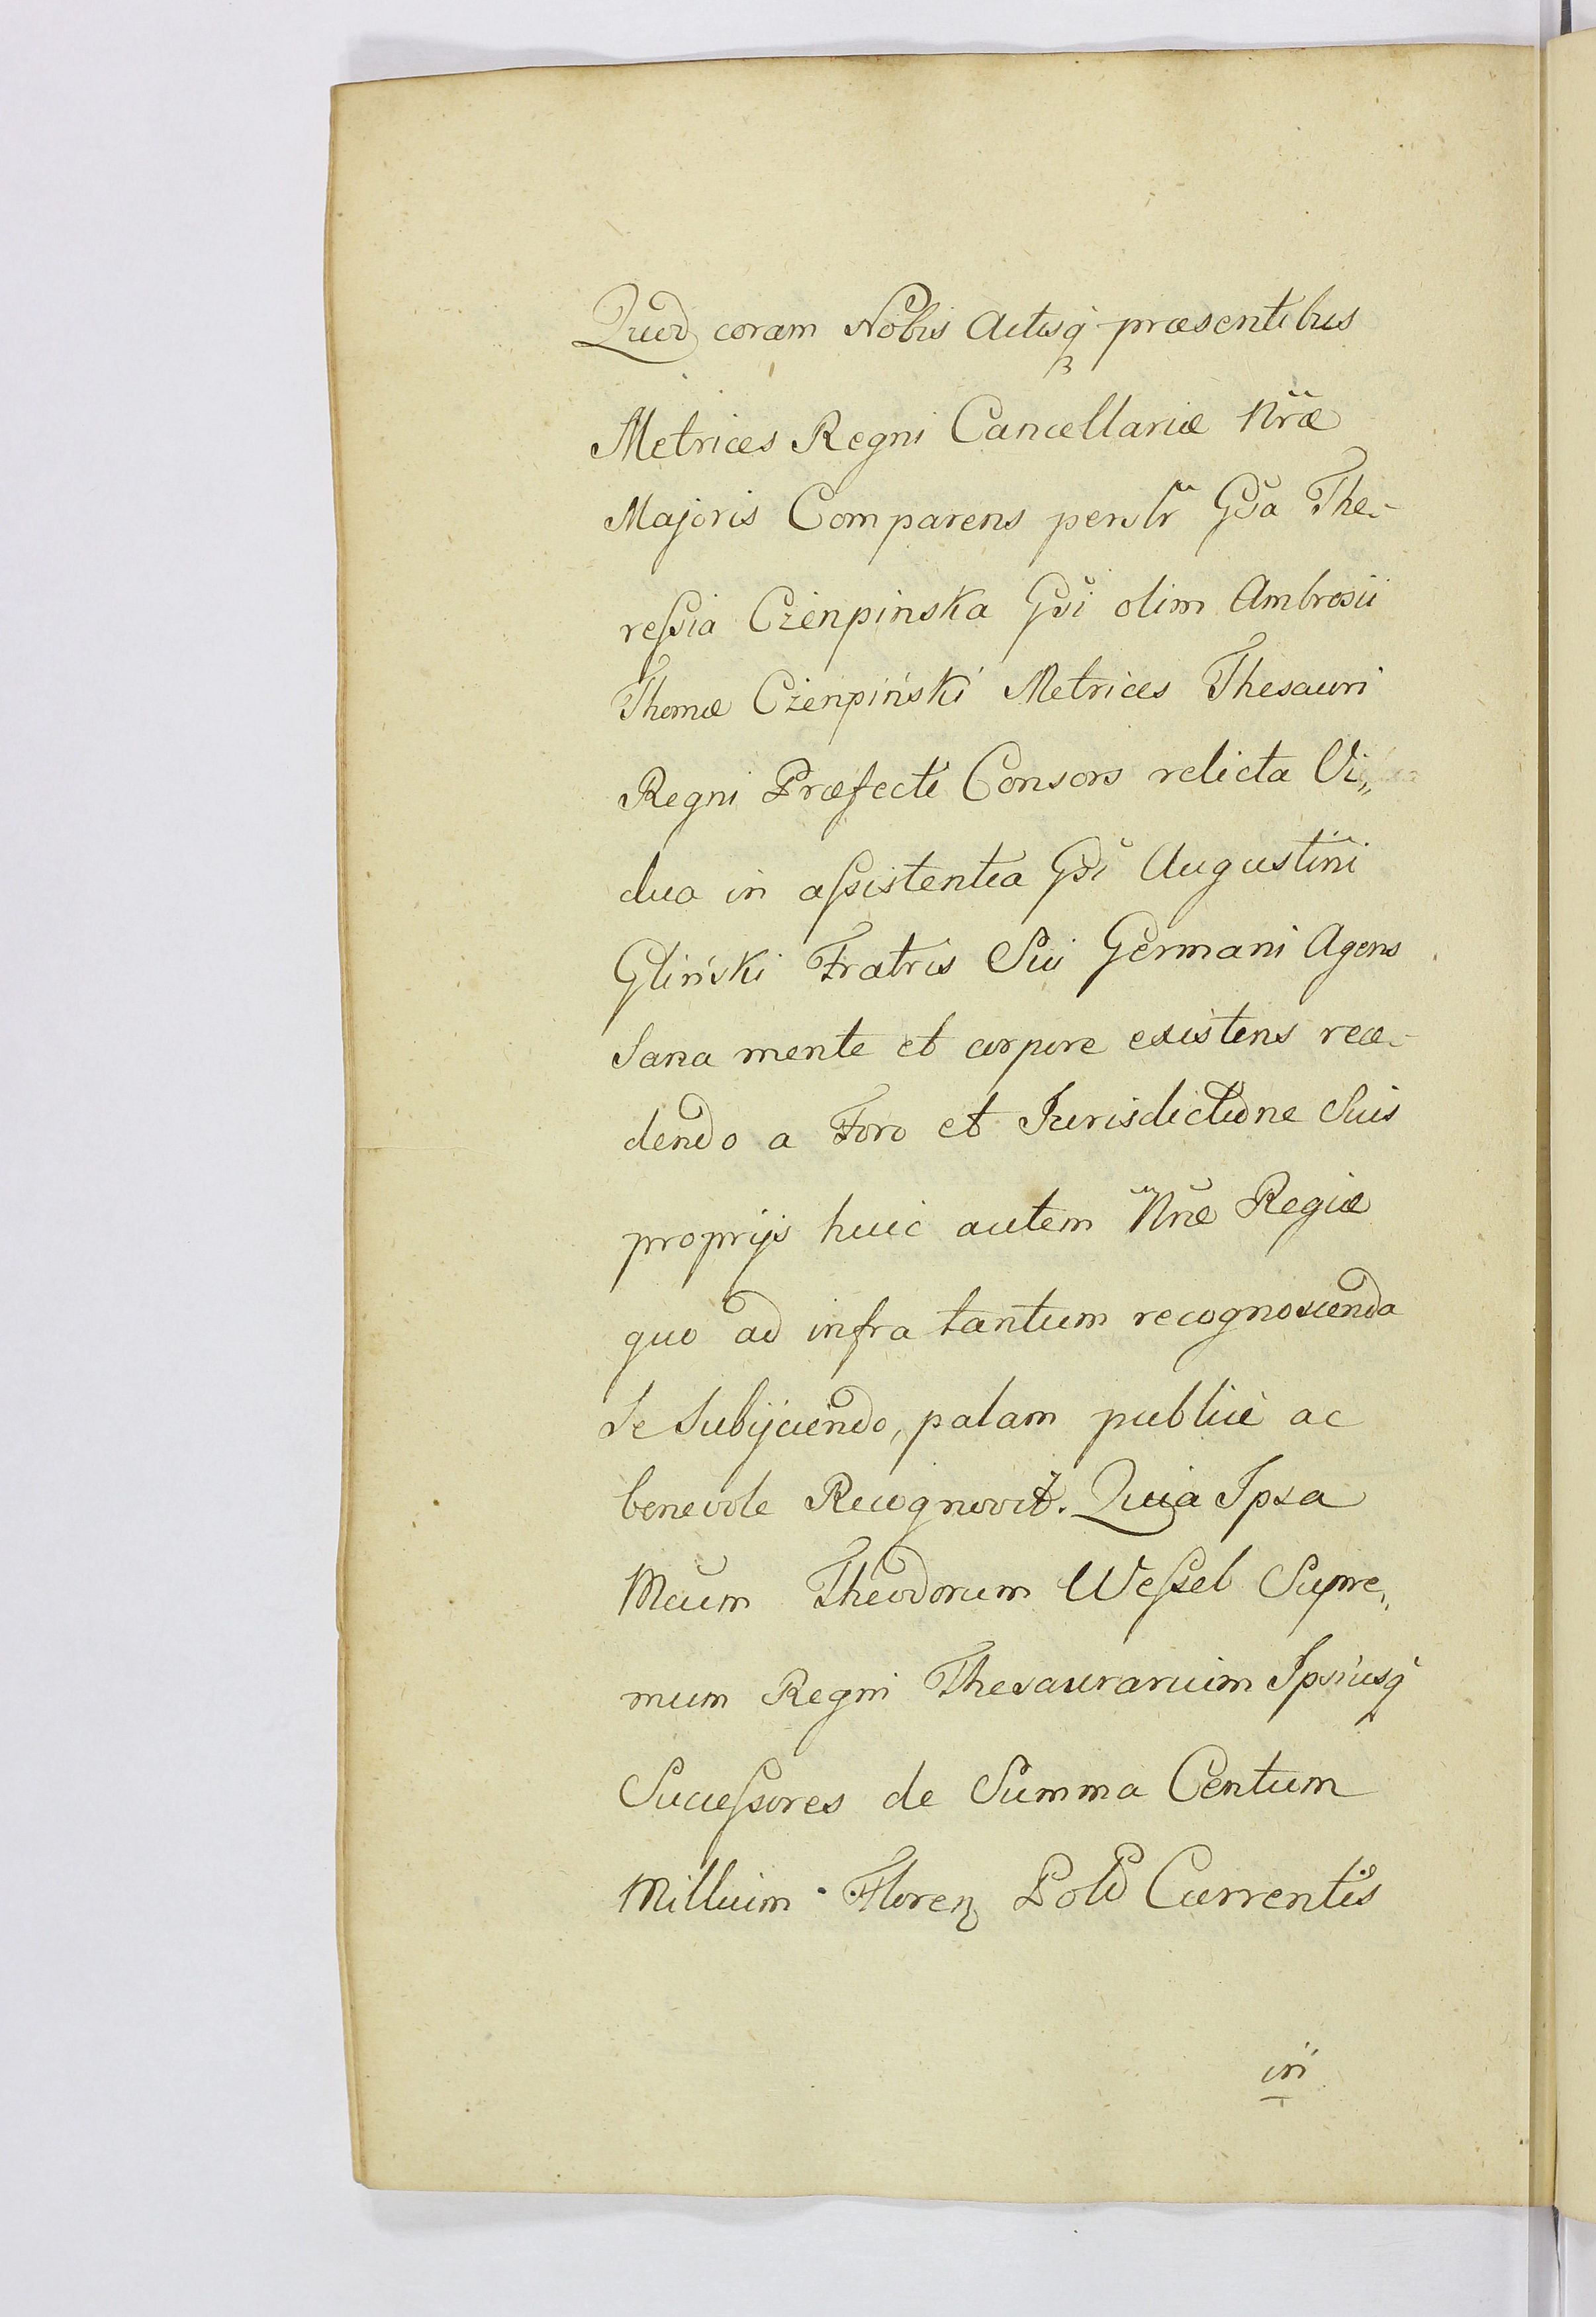 Quod coram Nobis Actisq́ praesentibus
Metrices Regni Cancellariæ Nr̃æ
Majoris Comparens persltr̃ Gs̃a The-
reſsia Czenpinska Gs̃i olim Ambrosii
Thomæ Czenpiński Metrices Thesauri
Regni Præfecti Consors relicta Vi„
dua in aſsistentia Gs̃i Augustini
Gliński Fratris Sui Germani Agens
Sana mente et corpore existens rece-
dendo a Foro et Jurisdictione Suis
proprijs huic autem Nr̃æ Regiæ
quo ad infra tantum recognoscenda
se Subijciendo, palam publicè ac
benevole Recognovit. Quia Ipsa
Mcum Theodorum Weſsel Supre„
mum Regni Thesaurarium Ipsiusq́
Succeſsores de Summa Centum
Millium Floren Pold Currentis
in